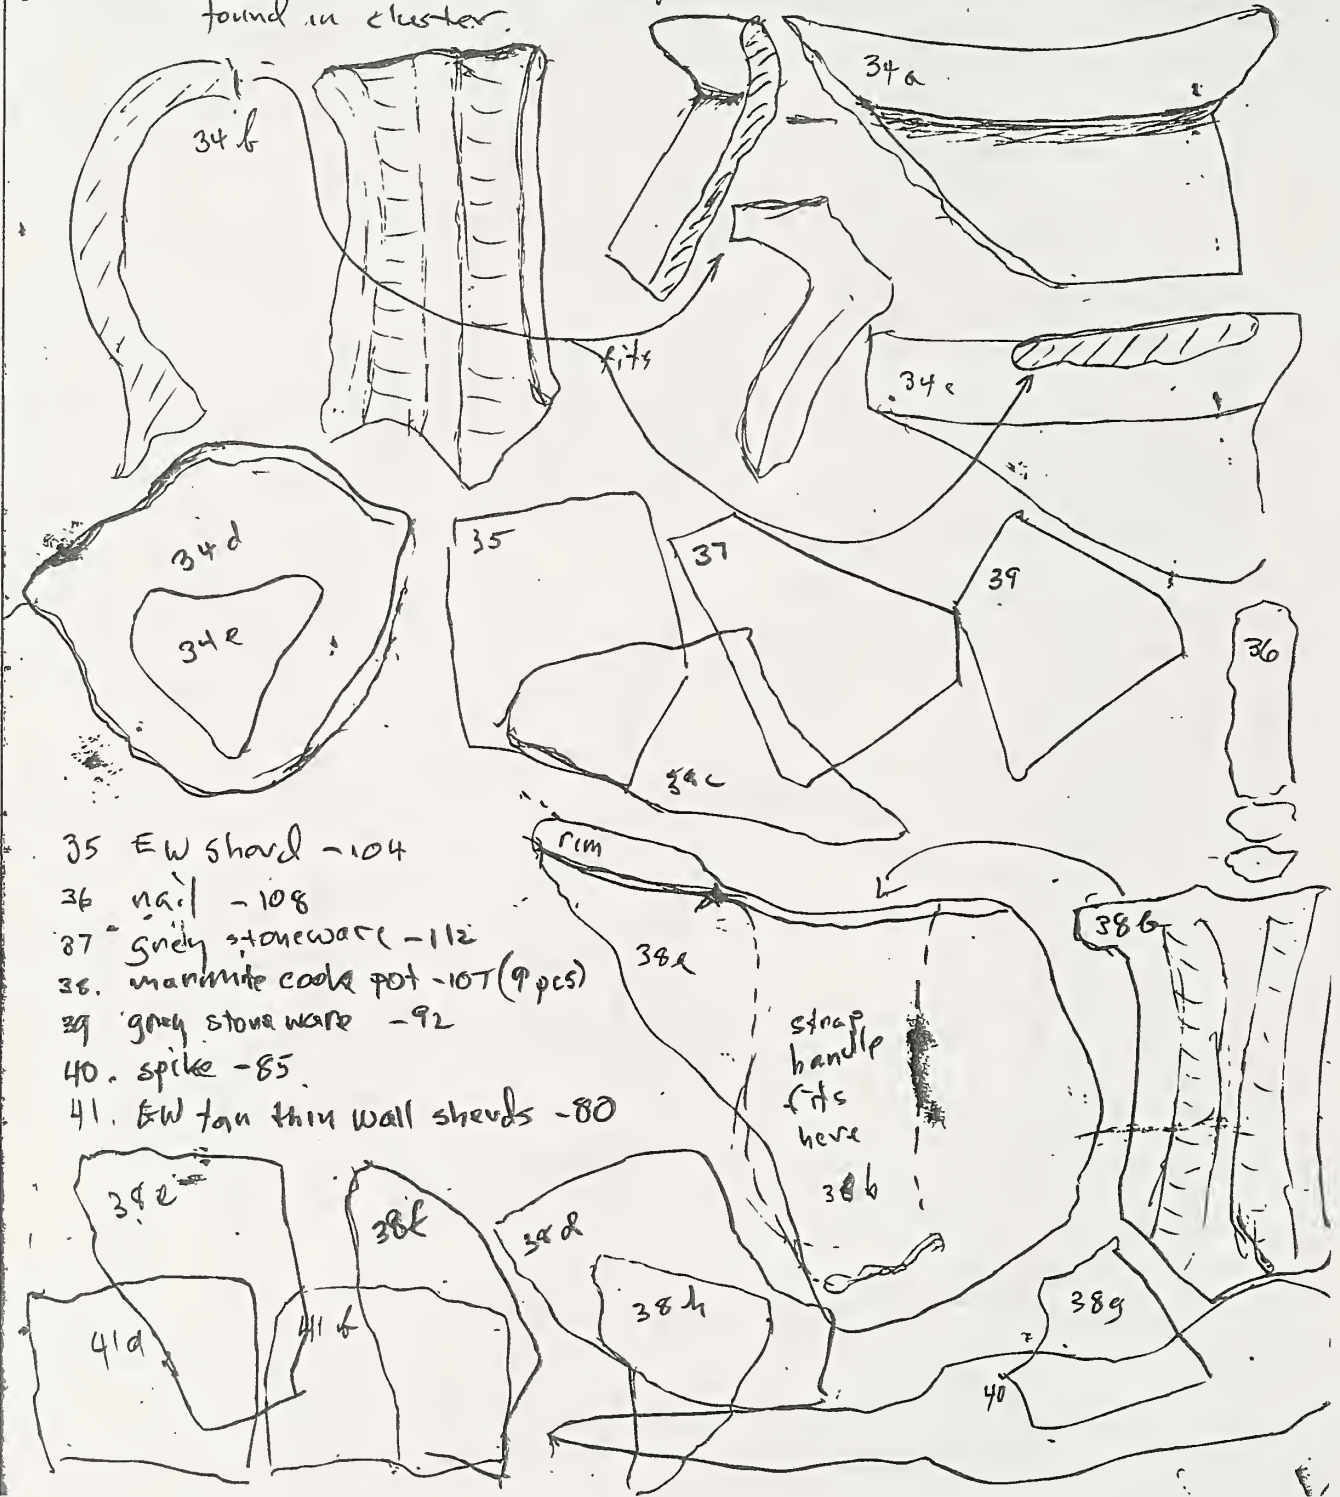 found in cluster.
34a
34b
fits
34c
34d
34e
35
37
39
36
34c
35 EW sherd -104
36 nail -108
37 grey stoneware -112
38. marmite cook pot -107 (9 pcs)
39 grey stoneware -92
40. spike -85
41. EW tan thin wall sherds -80
rim
38a
38b
strap
handle
fits
here
38b
38e
38f
38d
38h
38g
41a
41b
40